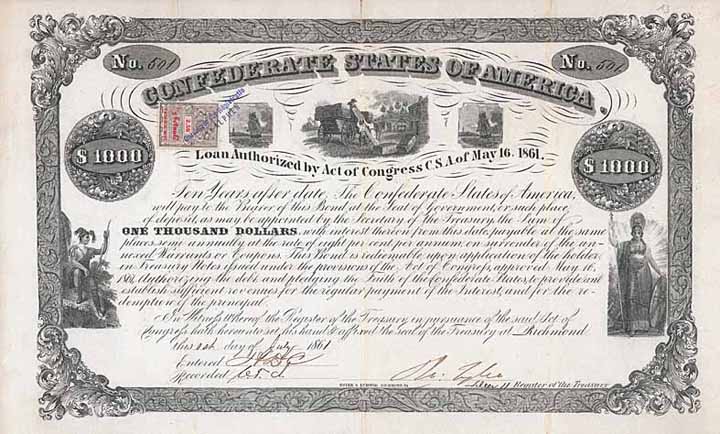 No. 601
No. 601
CONFEDERATE STATES OF AMERICA.
Loan Authorized by Act of Congress C.S.A of May 16. 1861.
$1000
$1000
Ten Years after date, The Confederate States of America,
will pay to the Bearer of this Bond at the Seat of Government, or such place
of deposit, as may be appointed by the Secretary of the Treasury, the Sum of
ONE THOUSAND DOLLARS, with interest thereon from this date, payable at the same
place, semi annually at the rate of eight per cent per annum, on surrender of the an-
nexed Warrants or Coupons. This Bond is redeemable upon application of the holder,
in Treasury Notes issued under the provisions of the Act of Congress, approved May 16,
1861, Authorizing the debt and pledging the Faith of the Confederate States, to provide and
establish sufficient revenues for the regular payment of the Interest, and for the re-
demption of the principal.
In Witness Whereof the Register of the Treasury in pursuance of the said Act of
Congress hath hereunto set his hand & affixed the Seal of the Treasury at Richmond
this day of July 1861
Entered
Recorded
Register of the Treasury